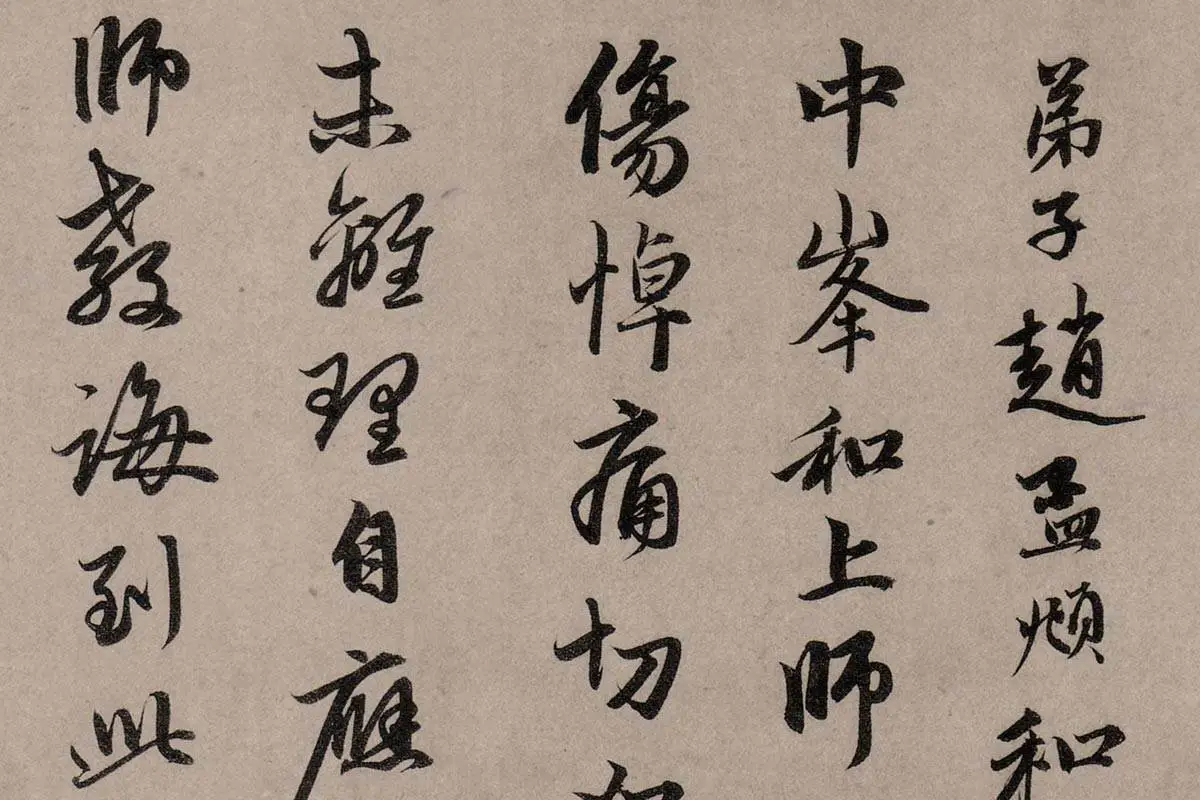 弟子趙孟頫和
中峯和上師
傷悼痛切如
未離理自應
師教誨到此